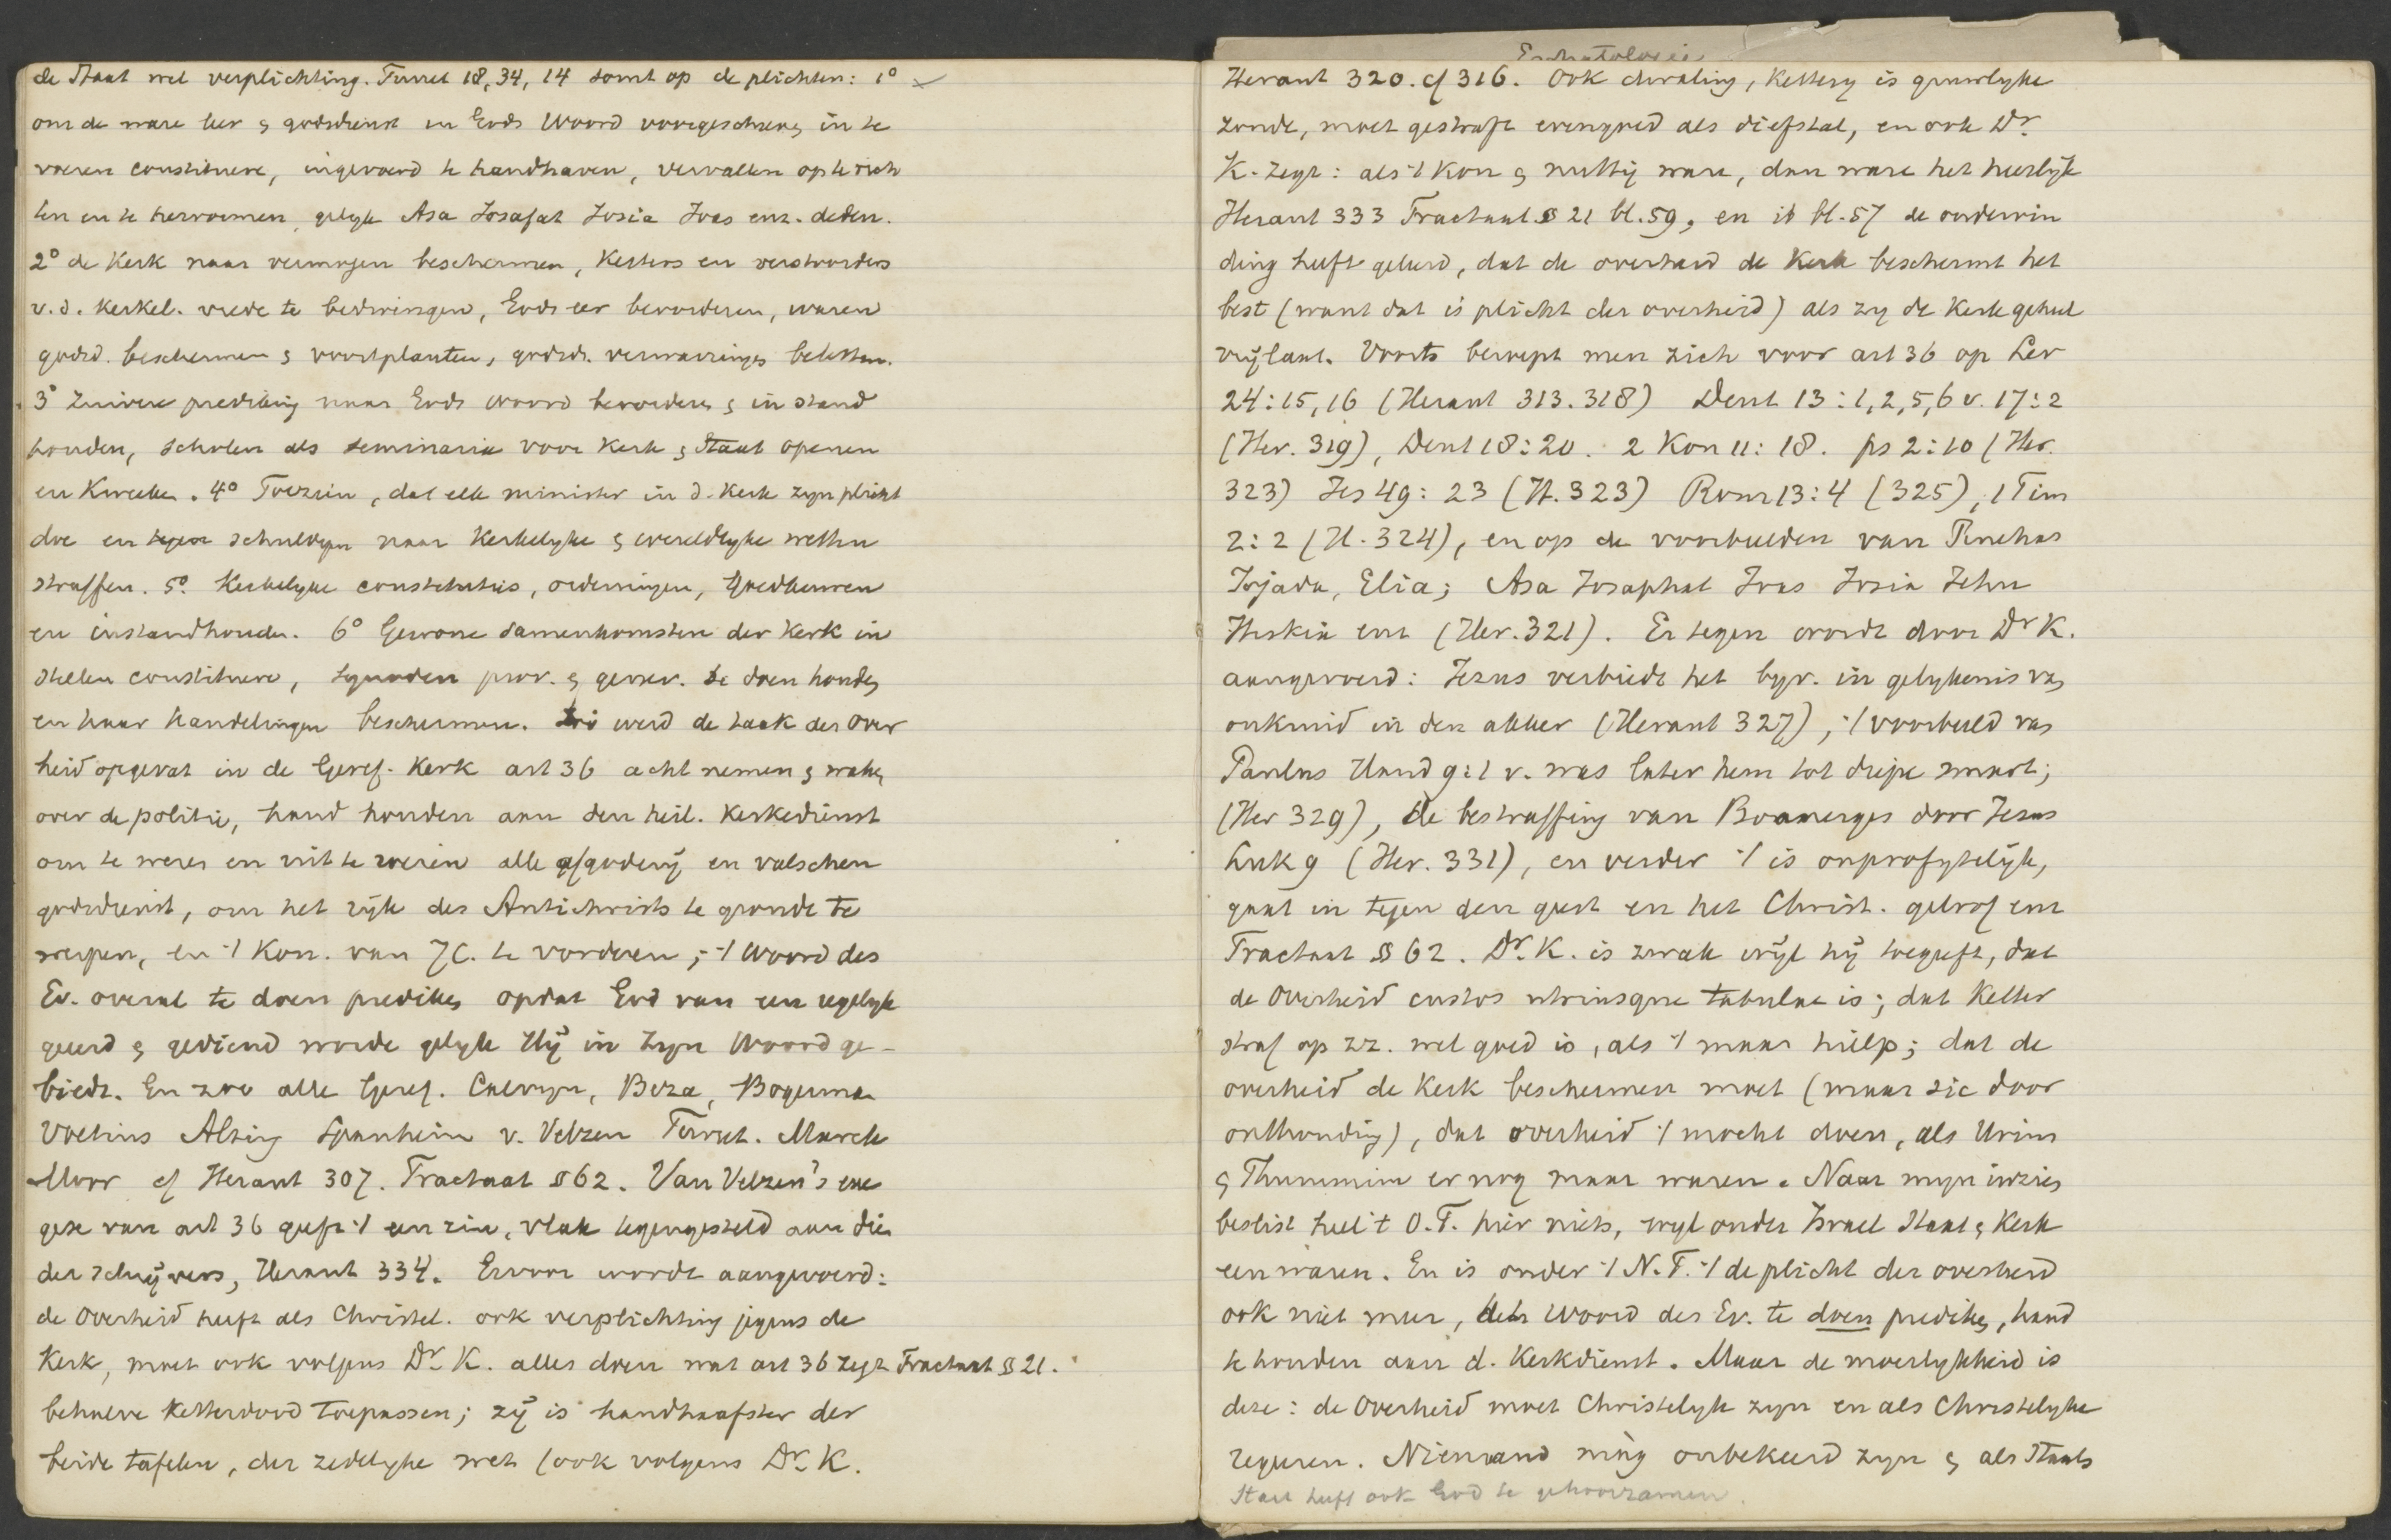 de Staat wel verplichting. Turret 18, 34, 14 somt op de plichten: 1°
om de ware leer & godsdienst in Gods Woord voorgeschreven in te
voeren constituere, ingevoerd te handhaven, vervallen op te rich
ten en te hervormen, gelyk Asa Josafat Josia Joas enz. deden.
2° de Kerk naar vermogen beschermen, Ketters en verstoorders
v. d. Kerkel. vrede te bedwingen, Gods eer bevorderen, waren
godsd. beschermen & voortplanten, godsd. verwarringen beletten.
3° Zuivere prediking naar Gods woord bevorderen & in stand
houden, scholen als seminaria voor Kerk & Staat openen
en Kweeken. 4° Toezien, dat elk minister in d. Kerk zyn plicht
doe en schuldigen naar Kerkelyke & wereldlyke wetten
straffen. 5° Kerkelyke constitutis, ordeningen, goedkeuren
en instandhouden. 6° Gewone samenkomsten der Kerk in
stellen constituere, synoden prov. & gener. te doen houden
en haar handelingen beschermen. Zoo werd de taak der Over
heid opgevat in de Geref. Kerk art 36 acht nemen & waken
over de politie, hand houden aan den heil. Kerkedienst
om te weren en uit te roeien alle afgodery en valschen
godsdienst, om het ryk des Antichrists te gronde te
werpen, en 't Kon. van JC. te vorderen; 't Woord des
Ev. overal te doen prediken opdat God van een iegelyk
geëerd & gediend worde gelyk Hy in Zyn Woord ge-
biedt. En zoo alle Geref. Calvyn, Beza, Bogerman
Voetius Alting Spanheim v. Velzen Turret. Marck
Moor cf Heraut 307. Tractaat § 62. Van Velzen's exe
gese van art 36 geeft 't een zin, vlak tegengesteld aan die
der schryvers, Heraut 334. Ervoor wordt aangevoerd:
de Overheid heeft als Christel. ook verplichting jegens de
Kerk, moet ook volgens Dr. K. alles doen wat art 36 zegt Tractaat § 21.
behalve Ketterdood toepassen; zy is handhaafster der
beide tafelen, der zedelyke wet (ook volgens Dr. K.
Eschatologie
Heraut 320. cf 316. Ook dwaling, Kettery is gruwlyke
zonde, moet gestraft evengoed als diefstal, en ook Dr.
K. zegt: als 't Kon & nuttig ware, dan ware het heerlyk
Heraut 333 Tractaat § 21 bl. 59, en ib bl. 57 de ondervin
ding heeft geleerd, dat de overheid de Kerk beschermt het
best (want dat is plicht der overheid) als zy de Kerk geheel
vrylaat. Voorts beroept men zich voor art 36 op Lev
24:15, 16 (Heraut 313. 318) Deut 13:1, 2, 5, 6 v. 17:2
(Her. 319), Deut 18:20. 2 Kon 11:18. ps 2:10 (Her.
323) Jes 49:23 (H. 323) Rom 13:4 (325), 1 Tim
2:2 (H. 324), en op de voorbeelden van Pinehas
Jojada, Elia; Asa Josaphat Joas Josia Jehu
Hiskia enz (Her. 321). Er tegen wordt door Dr K.
aangevoerd: Jezus verbiedt het byv. in gelykenis van
onkruid in den akker (Heraut 327), 't voorbeeld van
Paulus Hand 9:1 v. was later hem tot diepe smart;
(Her 329), de bestraffing van Boanerges door Jezus
Luk 9 (Her. 331), en verder 't is onprofytelyk,
gaat in tegen den geest en het Christ. geloof enz
Tractaat § 62. Dr. K. is zwak wyl hy toegeeft, dat
de Overheid custos utriusque tabulae is; dat Ketter
straf op zz. wel goed is, als 't maar hielp; dat de
overheid de Kerk beschermen moet (maar zie door
onthouding), dat overheid 't mocht doen, als Urim
& Thummim er nog maar waren. Naar myn inzien
beslist heel 't O.T. hier niets, wyl onder Israel Staat & Kerk
een waren. En is onder 't N.T. 't de plicht der overheid
ook niet meer, het Woord des Ev. te doen prediken, hand
te houden aan d. Kerkdienst. Maar de moeilykheid is
deze: de Overheid moet Christelyk zyn en als Christelyke
regeeren. Niemand mag onbekeerd zyn & als Staats
Staat heeft ook God te gehoorzamen.